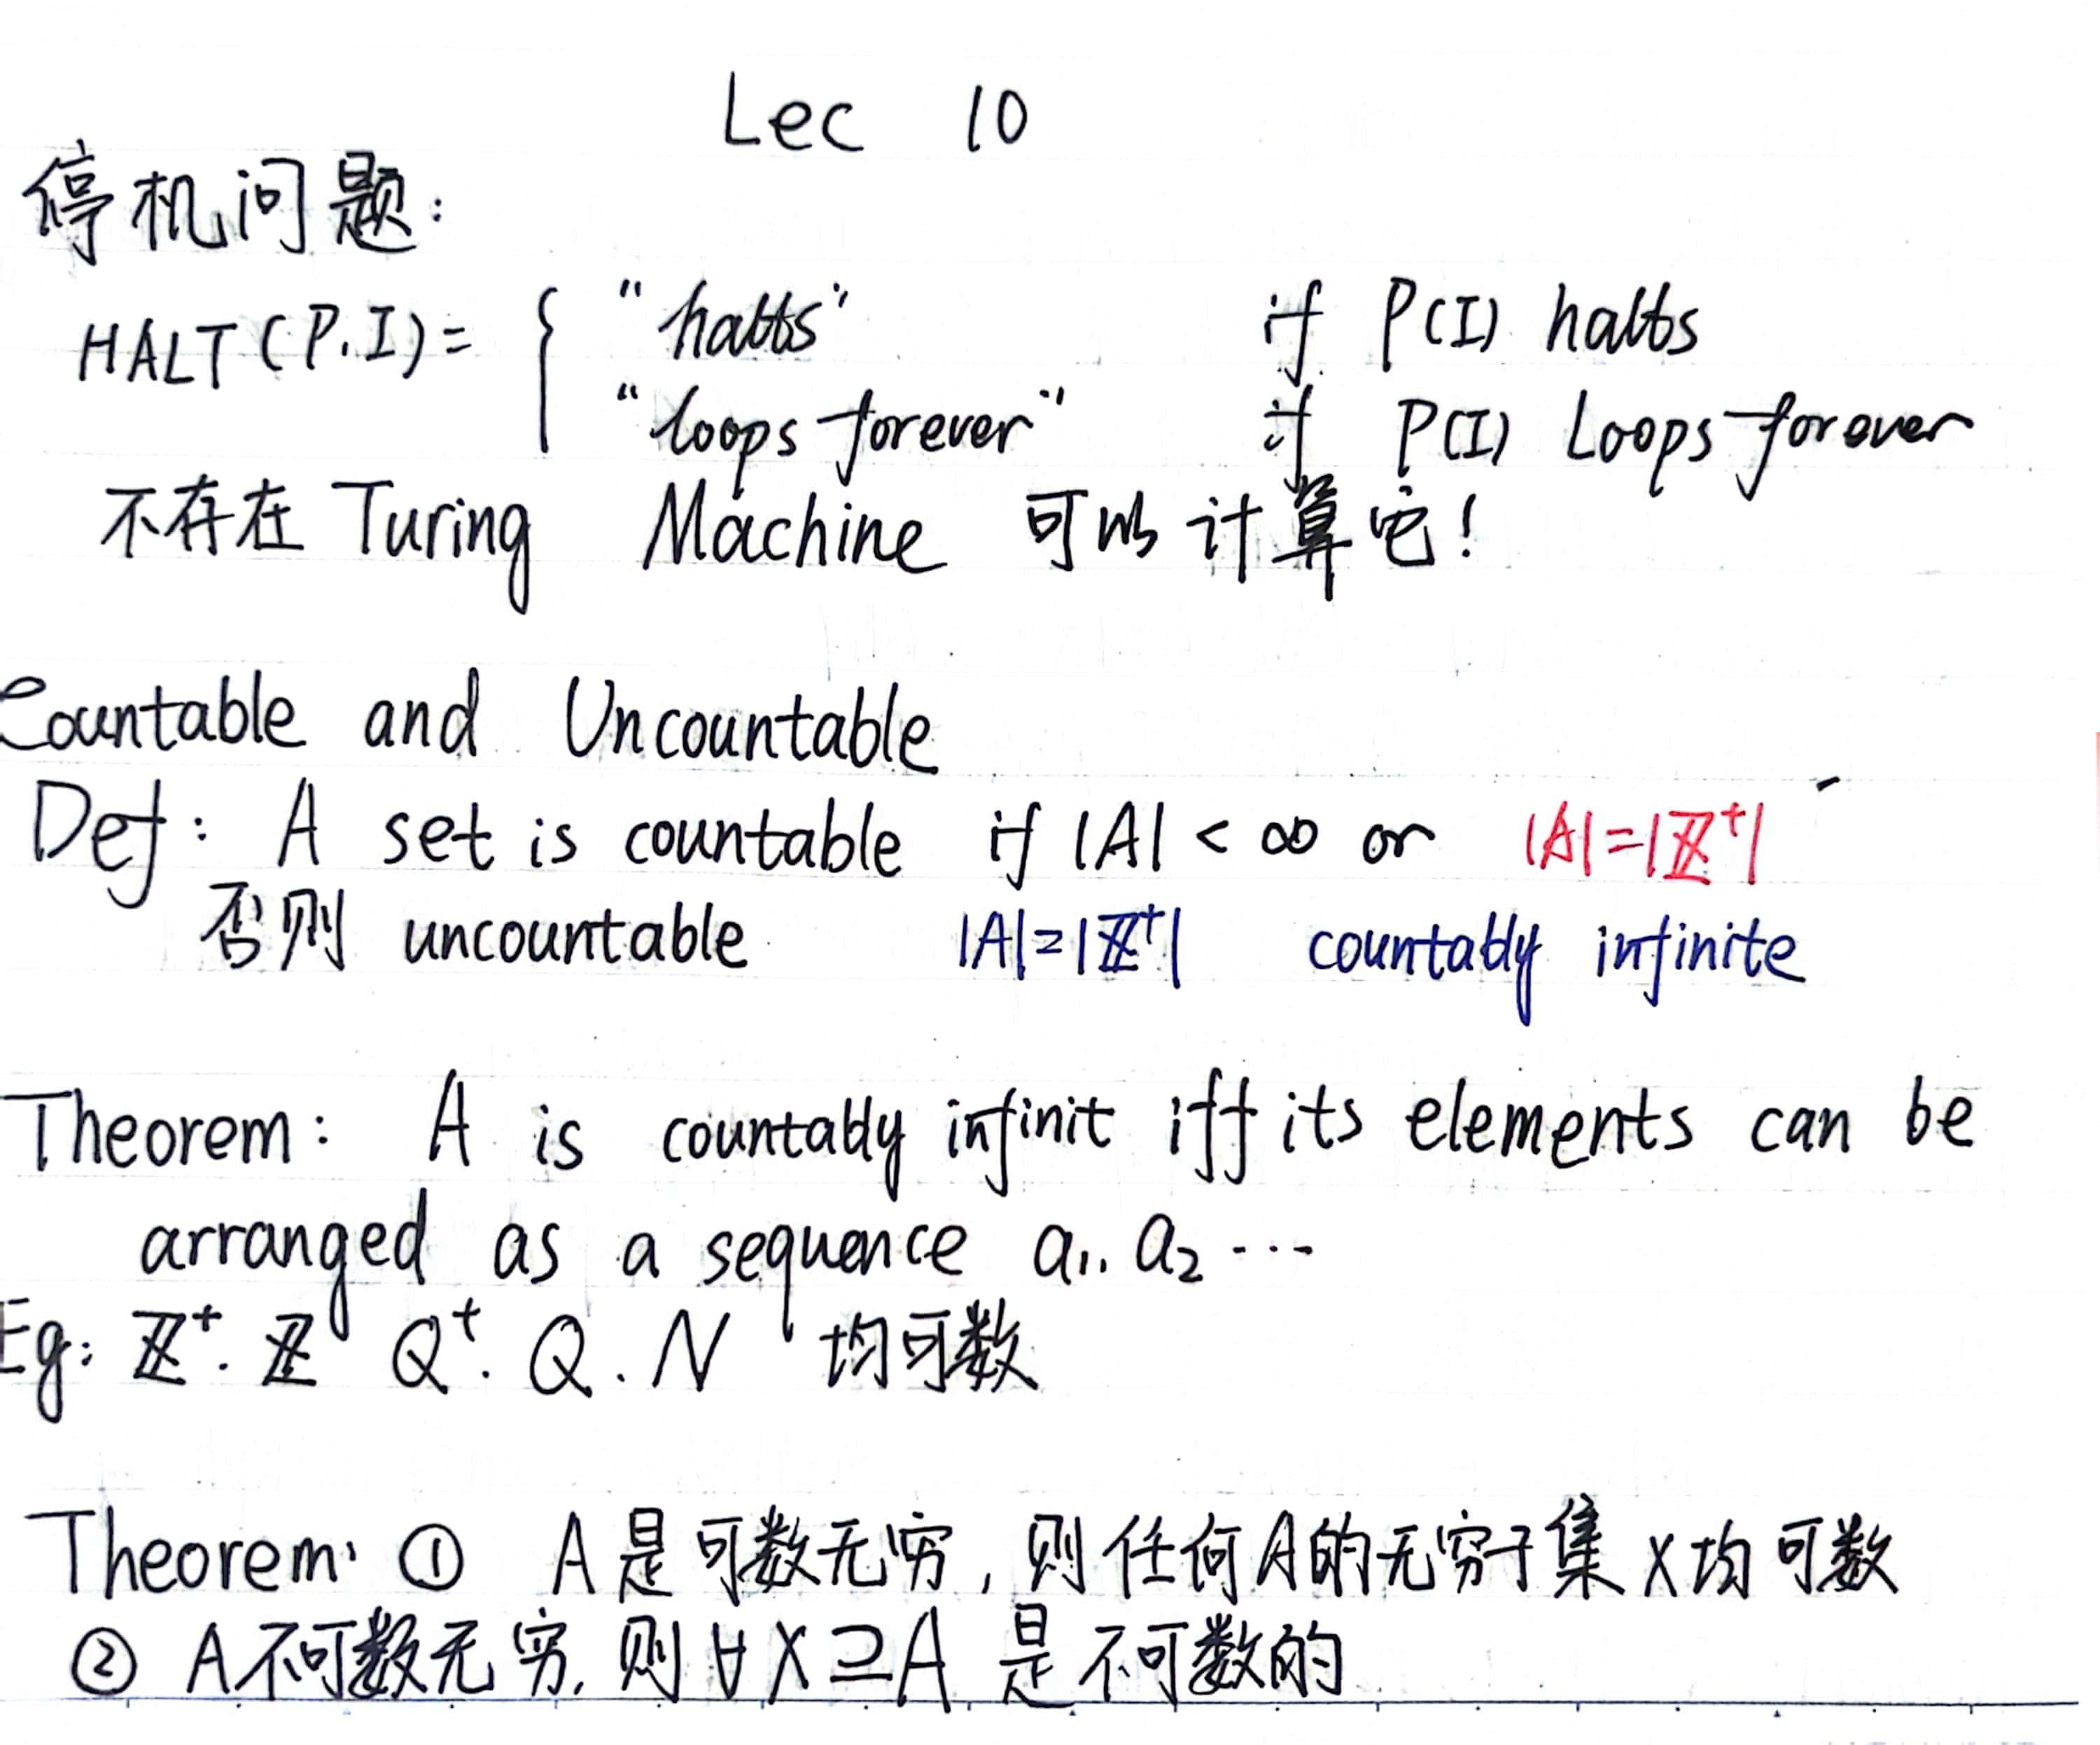 Lec 10
停机问题:
HALT(P.I)= { "halts" if P(I) halts
"loops forever" if P(I) Loops forever
不存在 Turing Machine 可以计算它!
Countable and Uncountable
Def: A set is countable if |A| < ∞ or |A|=|ℤ⁺|
否则 uncountable |A|=|ℤ⁺| countably infinite
Theorem: A is countably infinit iff its elements can be
arranged as a sequence a₁. a₂ ...
Eg: ℤ⁺. ℤ Q⁺. Q. N 均可数
Theorem: ① A是可数无穷, 则任何A的无穷子集X均可数
② A不可数无穷. 则∀X⊇A 是不可数的